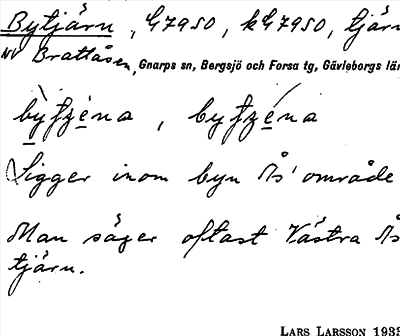 Bytjärn, G7950, kG7950, tjärn
NV Brattåsen, Gnarps sn, Bergsjö och Forsa tg, Gävleborgs län
Ligger inom byn Ås' område
Man säger oftast Västra Ås
tjärn.
LARS LARSSON 1933